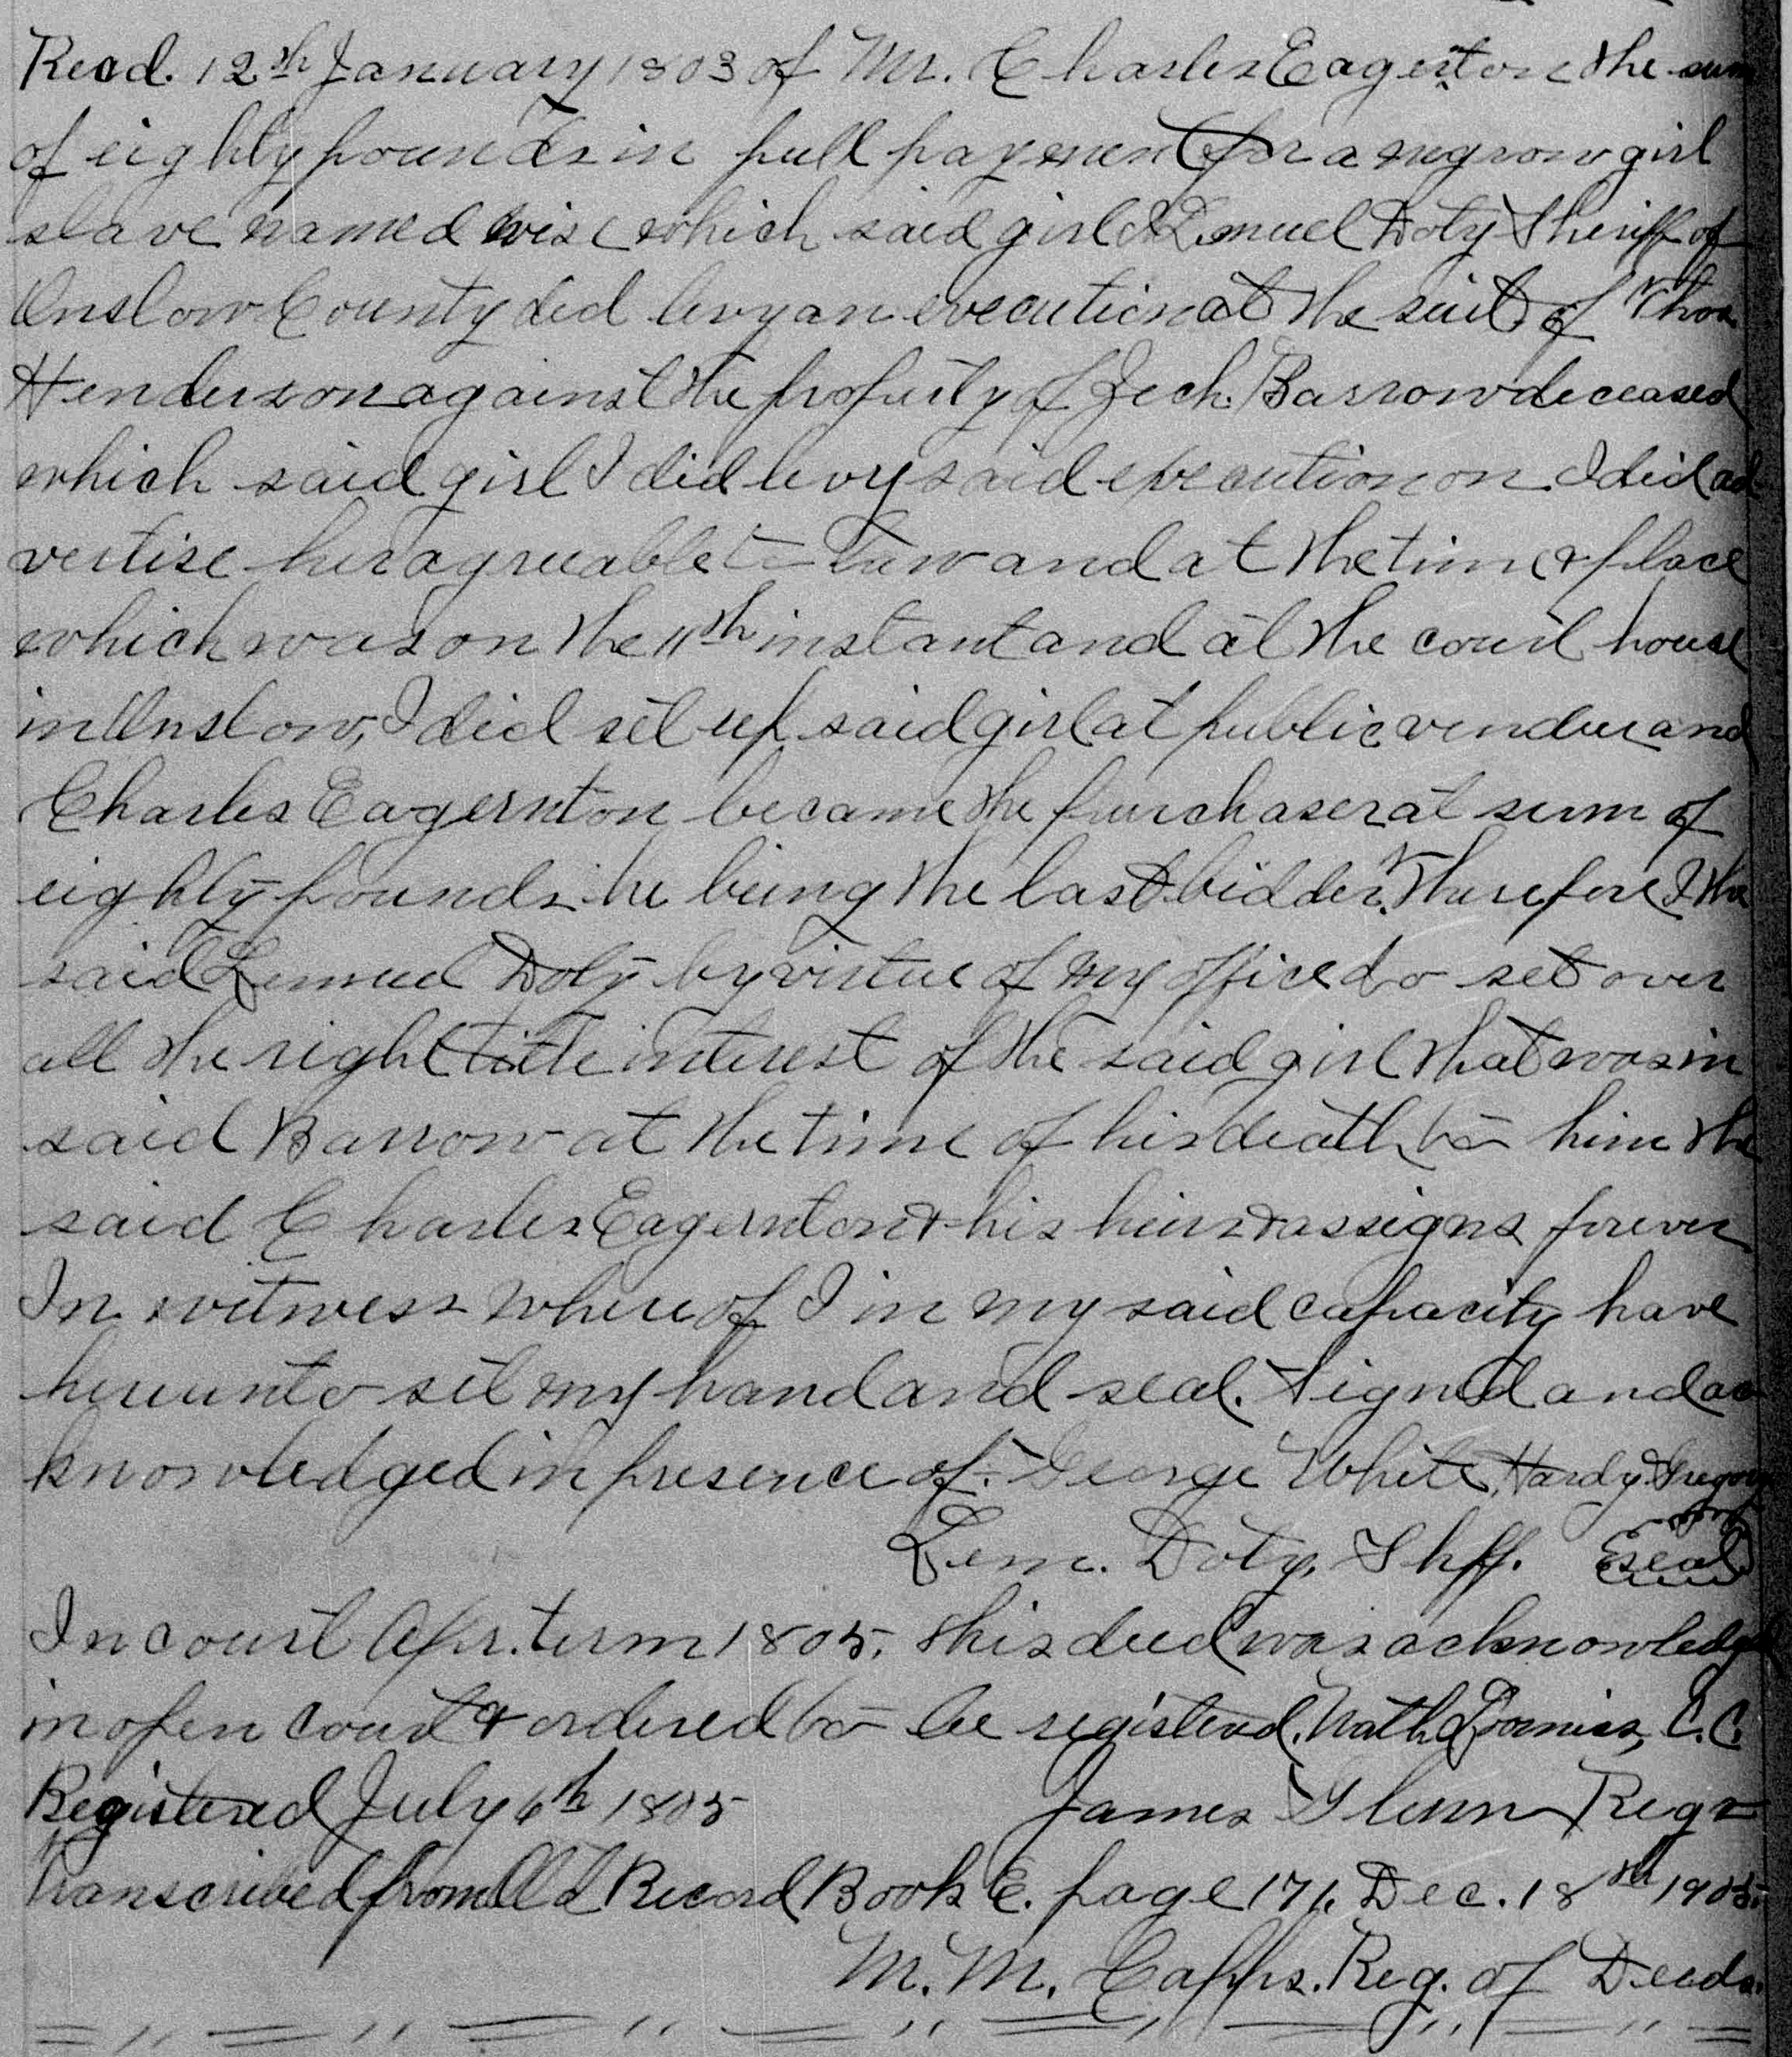 Recd. 12th January 1803 of Mr. Charles Eagerton the sum
of eighty pounds in full payment for a negrow girl
slave named wise which said girl I Lemuel Doty Sheriff of
Onslow County did levy an execution at the suit of Thos.
Henderson against the property of Zech. Barrow deceased
which said girl I did levy said execution on I did ad
vertise her agreeable to law and at the time & place
which was on the 11th instant and at the court house
in Onslow, I did set up said girl at public vendue and
Charles Eagernton became the purchaser at sum of
eighty pounds he being the last bidder. Therefore I the
said Lemuel Doty by virtue of my office do set over
all the right title interest of the said girl that was in
said Barrow at the time of his death to him the
said Charles Eagernton & his heirs & assigns forever
In witness whereof I in my said capacity have
hereunto set my hand and seal. Signed and ac
knowledged in presence of. George White, Hardy Gregory
Lem. Doty, Shff. Seal
In court Apr. term 1805. this deed was acknowledged
in open court & ordered to be registerd. Nath. Loomiss, C.C.
Registered July 6th 1805 James Glenn Regr
Transcribed from Old Record Book E. page 171. Dec. 18th 1905.
M. M. Capps. Reg. of Deeds.